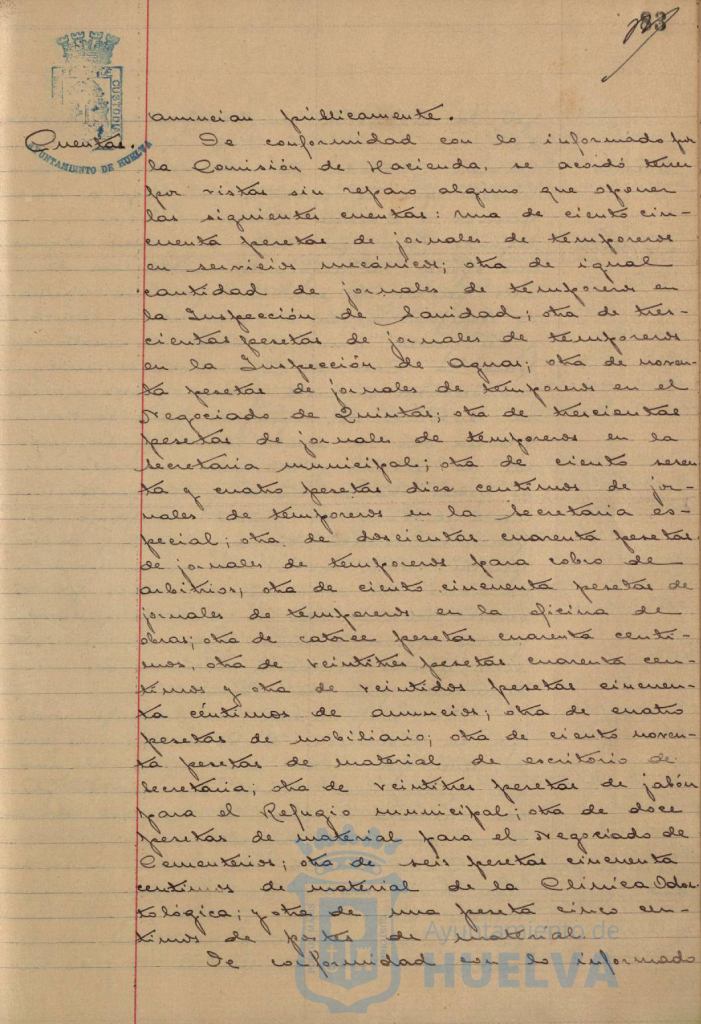 33
anuncian públicamente.
Cuentas.
CUSTODIA
AYUNTAMIENTO DE HUELVA
De conformidad con lo informado por
la Comisión de Hacienda, se acordó tener
por vistas sin reparo alguno que oponer
las siguientes cuentas: una de ciento cin-
cuenta pesetas de jornales de temporeros
en servicios mecánicos; otra de igual
cantidad de jornales de temporeros en
la Inspección de Sanidad; otra de tres-
cientas pesetas de jornales de temporeros
en la Inspección de Aguas; otra de noven-
ta pesetas de jornales de temporeros en el
Negociado de Quintas; otra de trescientas
pesetas de jornales de temporeros en la
Secretaria municipal; otra de ciento seten
ta y cuatro pesetas diez centimos de jor-
nales de temporeros en la Secretaria es-
pecial; otra de doscientas cuarenta pesetas
de jornales de temporeros para cobro de
arbitrios; otra de ciento cincuenta pesetas de
jornales de temporeros en la oficina de
obras; otra de catorce pesetas cuarenta centi-
mos, otra de veintitrés pesetas cuarenta cen-
timos y otra de veintidos pesetas cincuen-
ta céntimos de anuncios; otra de cuatro
pesetas de mobiliario; otra de ciento noven-
ta pesetas de material de escritorio de
Secretaria; otra de veintitres pesetas de jabón
para el Refugio municipal; otra de doce
pesetas de material para el Negociado de
Cementerios; otra de seis pesetas cincuenta
centimos de material de la Clínica Odon-
tológica; y otra de una peseta cinco cen-
timos de portes de material.
De conformidad con lo informado
Ayuntamiento de
HUELVA